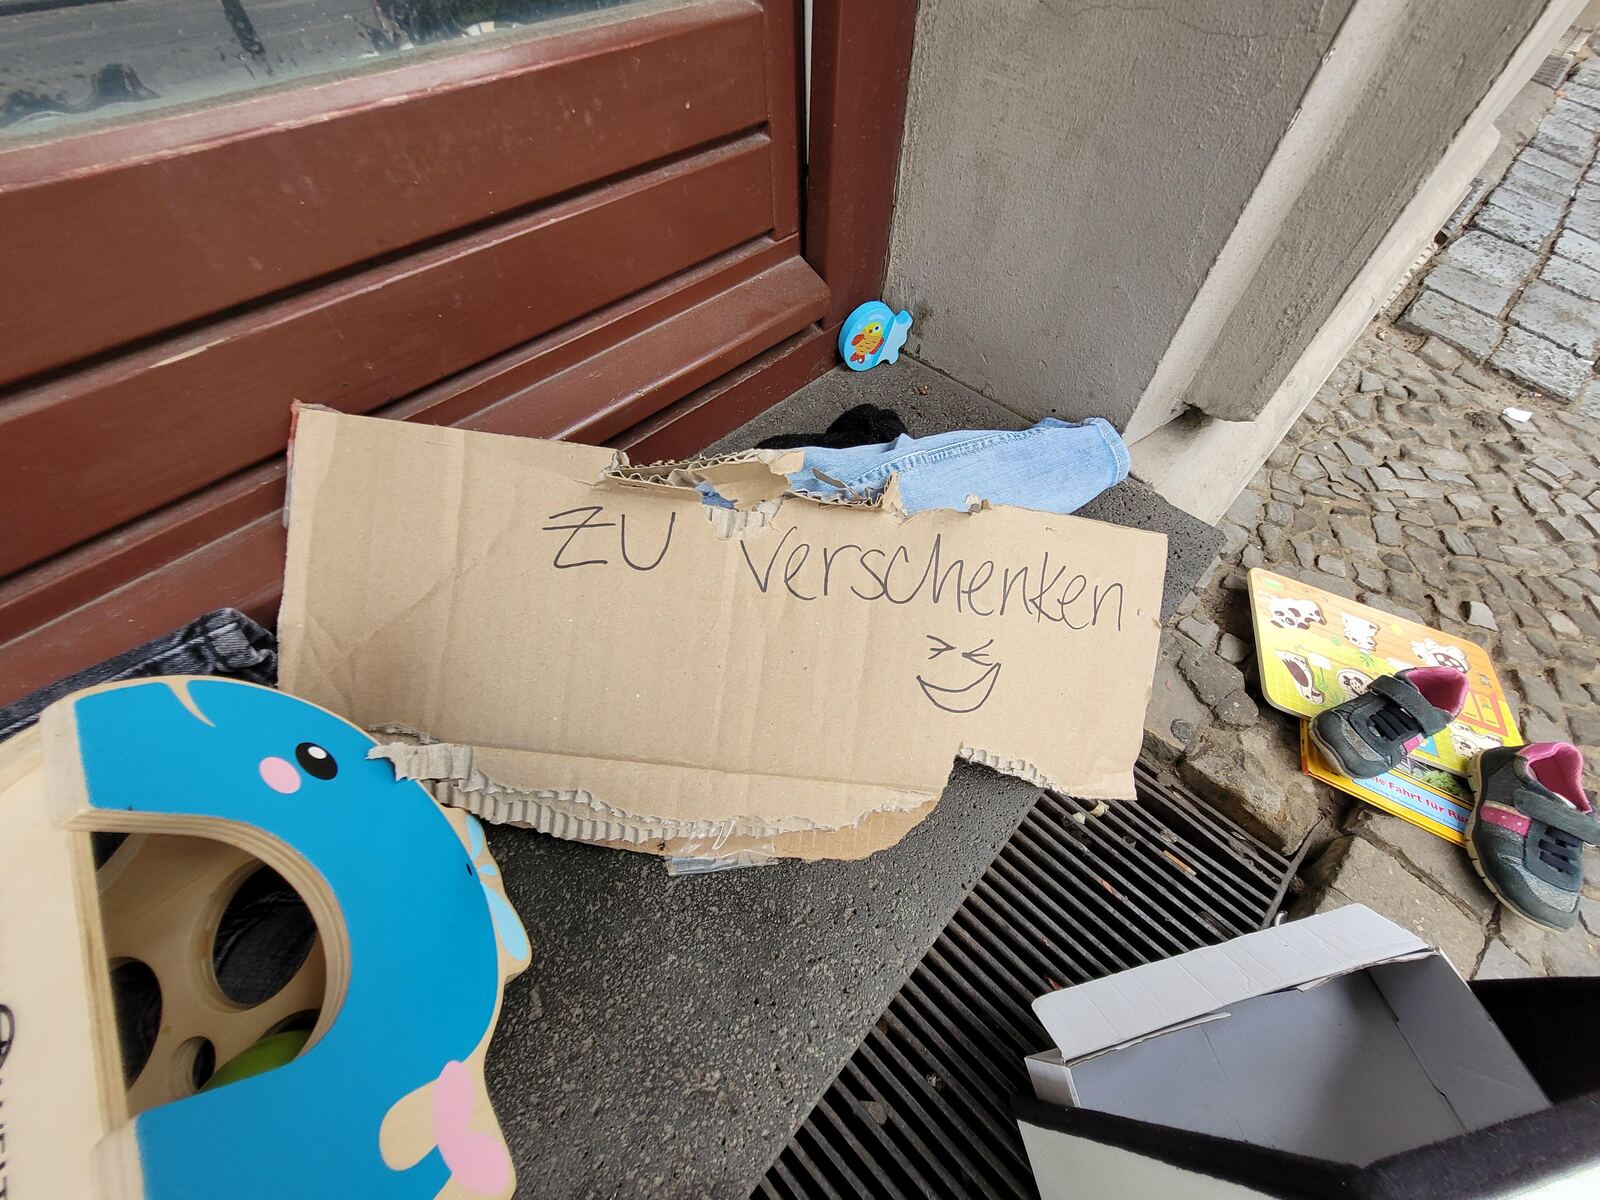 zu verschenken.
le Fahrt für Ru